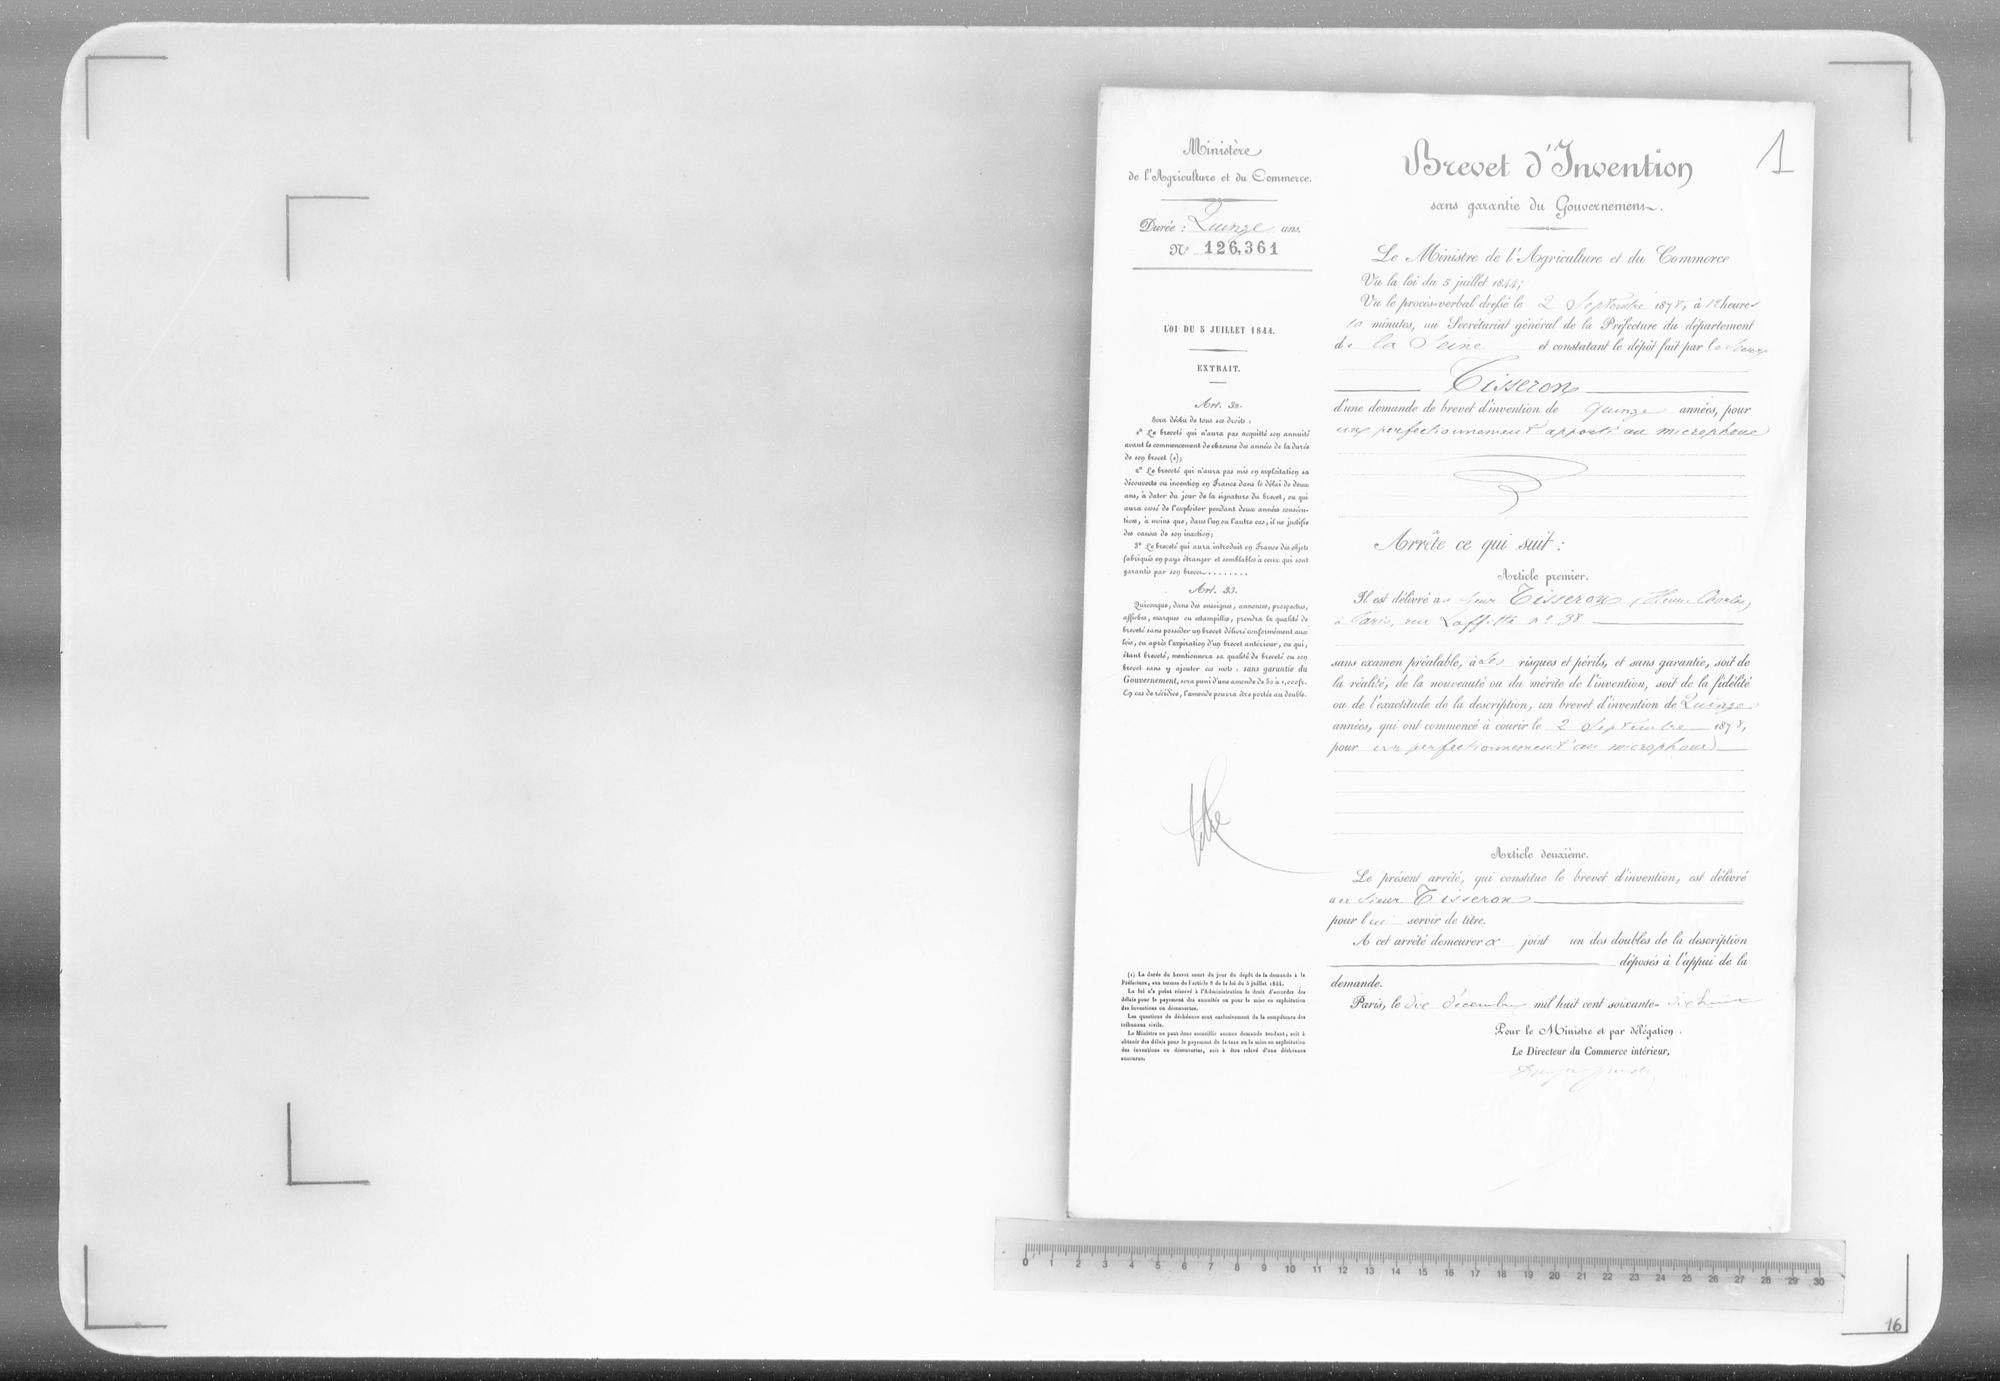 Ministère
de l'Agriculture et du Commerce.
Durée : Quinze ans.
N° 126,361
LOI DU 5 JUILLET 1844.
EXTRAIT.
Art. 32.
Sera déchu de tous ses droits :
1° Le breveté qui n'aura pas acquitté son annuité
avant le commencement de chacune des années de la durée
de son brevet (1);
2° Le breveté qui n'aura pas mis en exploitation sa
découverte ou invention en France dans le délai de deux
ans, à dater du jour de la signature du brevet, ou qui
aura cessé de l'exploiter pendant deux années consécu-
tives, à moins que, dans l'un ou l'autre cas, il ne justifie
des causes de son inaction;
3° Le breveté qui aura introduit en France des objets
fabriqués en pays étranger et semblables à ceux qui sont
garantis par son brevet........
Art. 33.
Quiconque, dans des enseignes, annonces, prospectus,
affiches, marques ou estampilles, prendra la qualité de
breveté sans posséder un brevet délivré conformément aux
lois, ou après l'expiration d'un brevet antérieur, ou qui,
étant breveté, mentionnera sa qualité de breveté ou son
brevet sans y ajouter ces mots : sans garantie du
Gouvernement, sera puni d'une amende de 50 à 1,000 fr.
En cas de récidive, l'amende pourra être portée au double.
(1) La durée du brevet court du jour du dépôt de la demande à la
Préfecture, aux termes de l'article 8 de la loi du 5 juillet 1844.
La loi n'a point réservé à l'Administration le droit d'accorder des
délais pour le payement des annuités ou pour la mise en exploitation
des inventions ou découvertes.
Les questions de déchéance sont exclusivement de la compétence des
tribunaux civils.
Le Ministre ne peut donc accueillir aucune demande tendant, soit à
obtenir des délais pour le payement de la taxe ou la mise en exploitation
des inventions ou découvertes, soit à être relevé d'une déchéance
encourue.
1
Brevet d'Invention
sans garantie du Gouvernement.
Le Ministre de l'Agriculture et du Commerce
Vu la loi du 5 juillet 1844;
Vu le procès-verbal dressé le 2 Septembre 1878, à heures
10 minutes, au Secrétariat général de la Préfecture du département
de la Seine et constatant le dépôt fait par le Sieur
Tisseron
d'une demande de brevet d'invention de quinze années, pour
un perfectionnement apporté au microphone
Arrête ce qui suit :
Article premier.
Il est délivré au Sieur Tisseron (Henri Charles)
à Paris, rue Laffitte n° 38
sans examen préalable, à ses risques et périls, et sans garantie, soit de
la réalité, de la nouveauté ou du mérite de l'invention, soit de la fidélité
ou de l'exactitude de la description, un brevet d'invention de Quinze
années, qui ont commencé à courir le 2 Septembre 1878,
pour un perfectionnement au microphone
Article deuxième.
Le présent arrêté, qui constitue le brevet d'invention, est délivré
au Sieur Tisseron
pour lui servir de titre.
A cet arrêté demeurera joint un des doubles de la description
déposés à l'appui de la
demande.
Paris, le dix décembre mil huit cent soixante dix huit
Pour le Ministre et par délégation :
Le Directeur du Commerce intérieur,
0 1 2 3 4 5 6 7 8 9 10 11 12 13 14 15 16 17 18 19 20 21 22 23 24 25 26 27 28 29 30
16